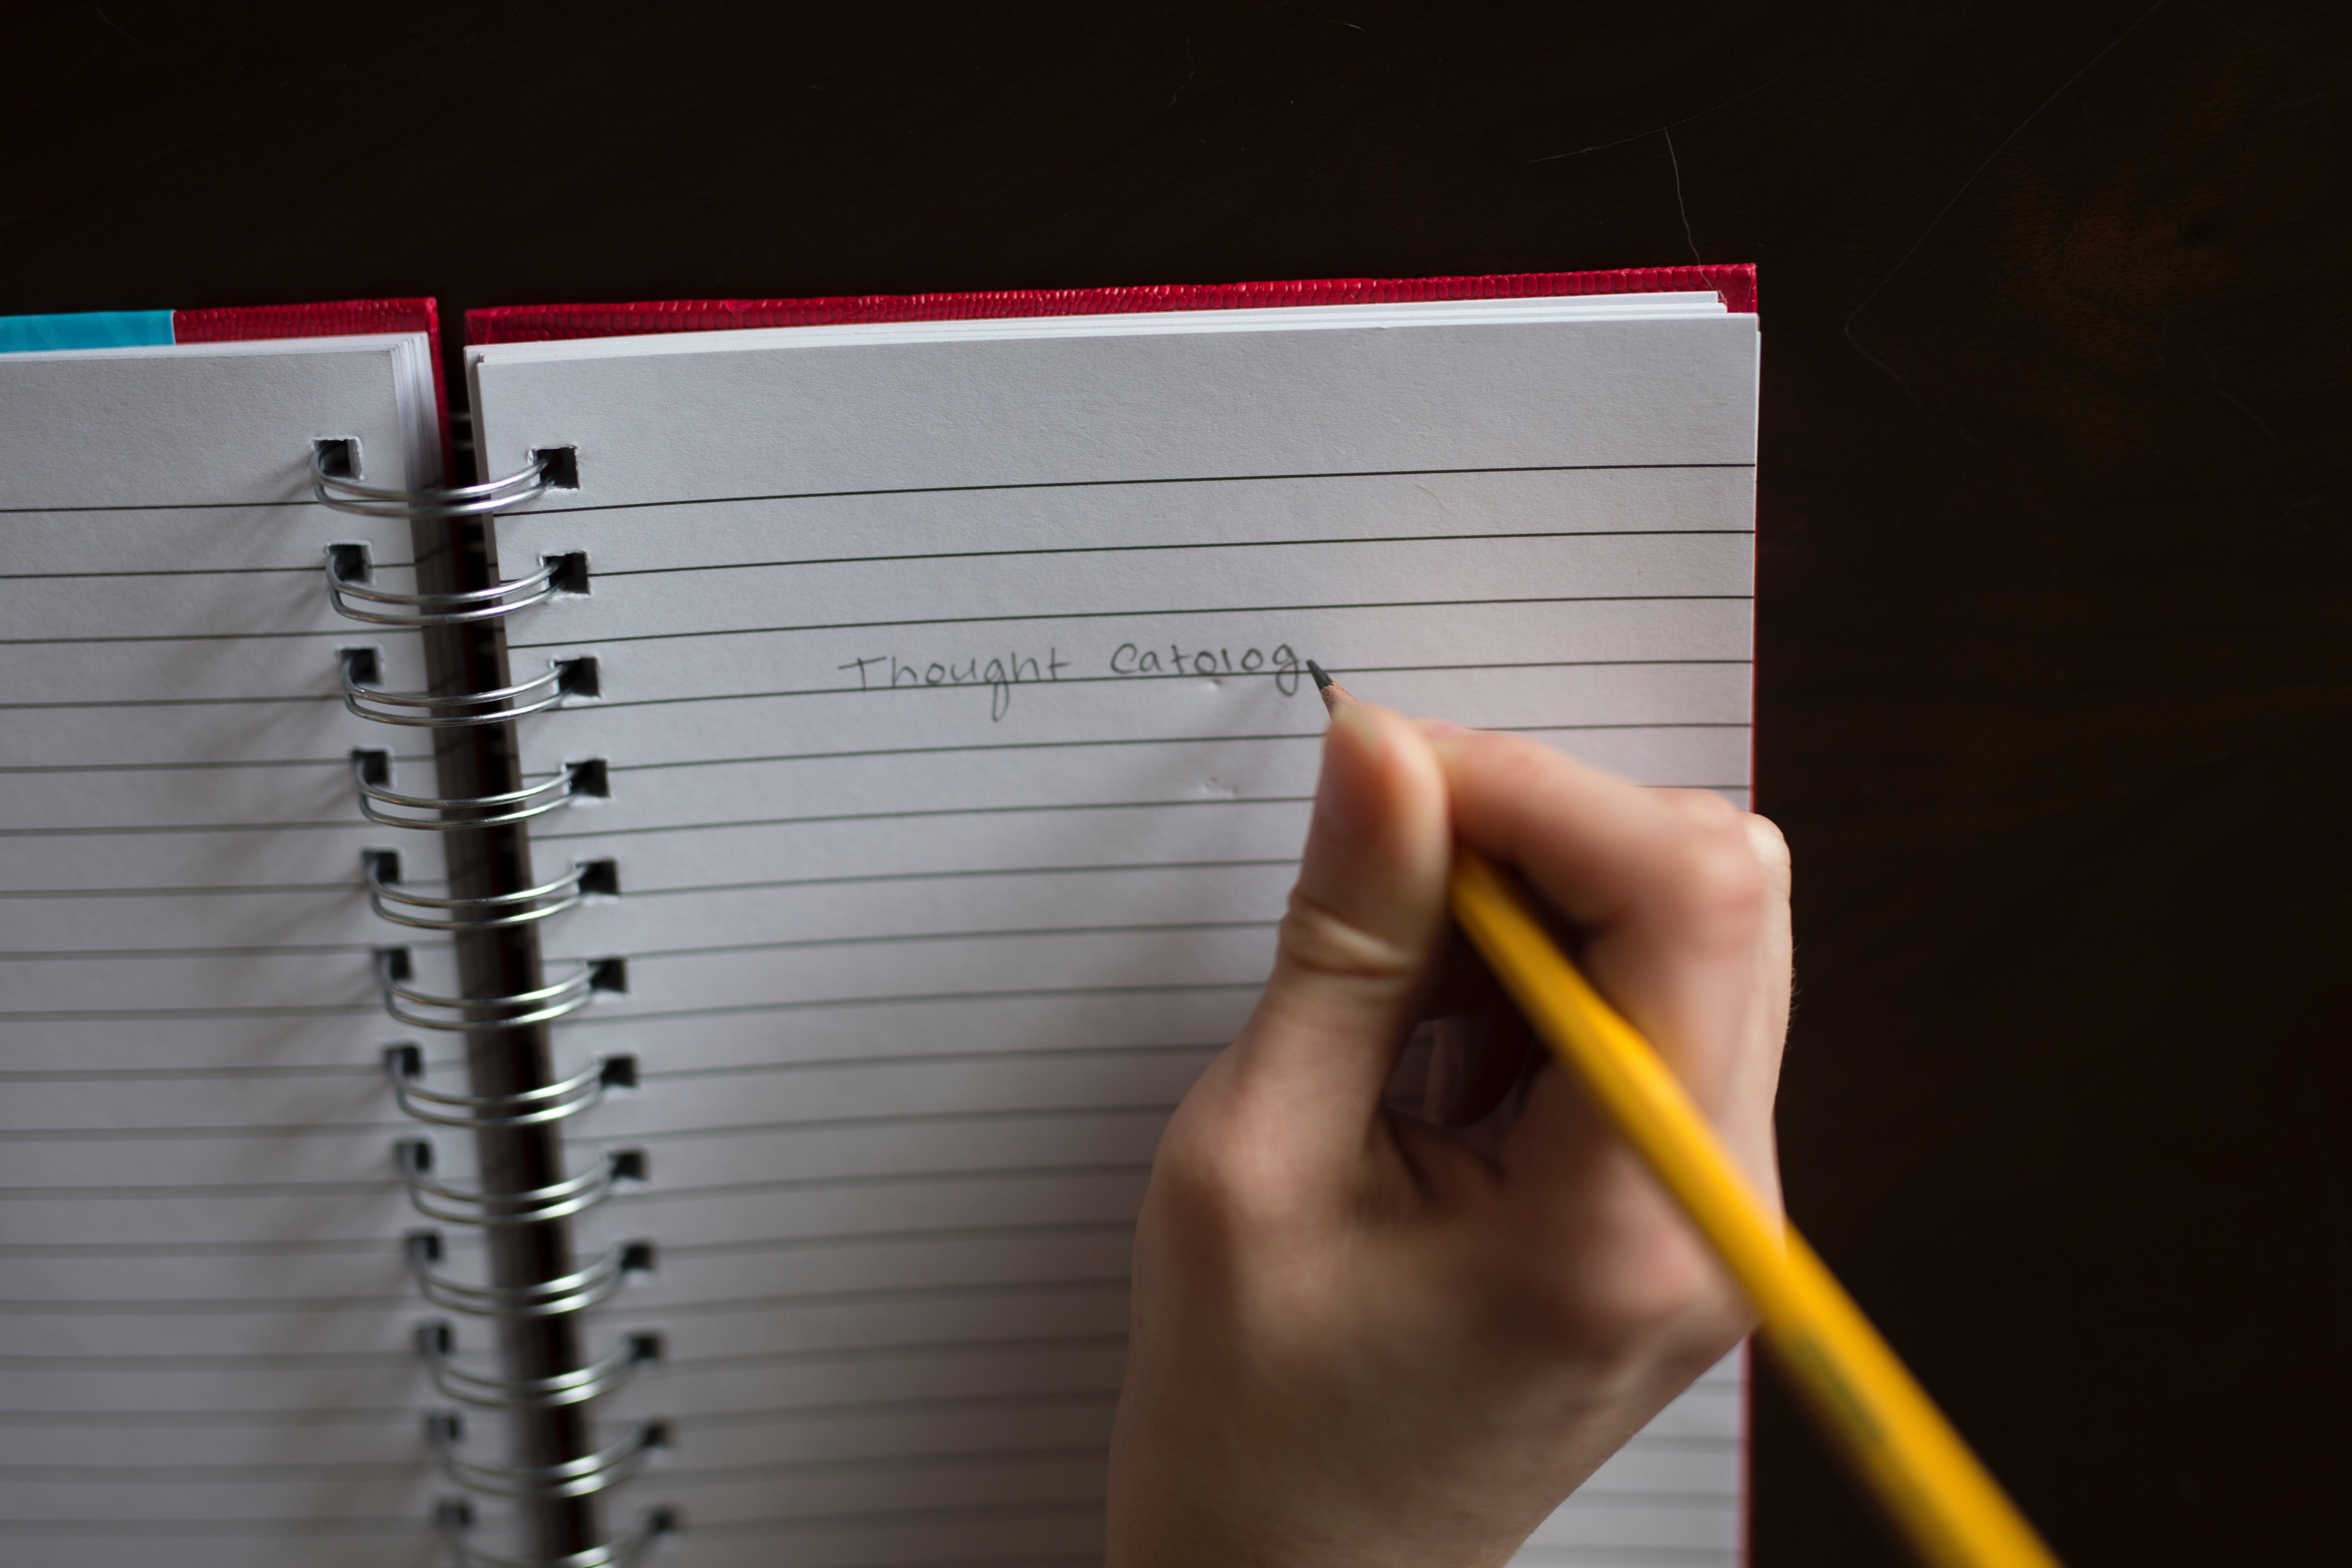 Thought Catolog